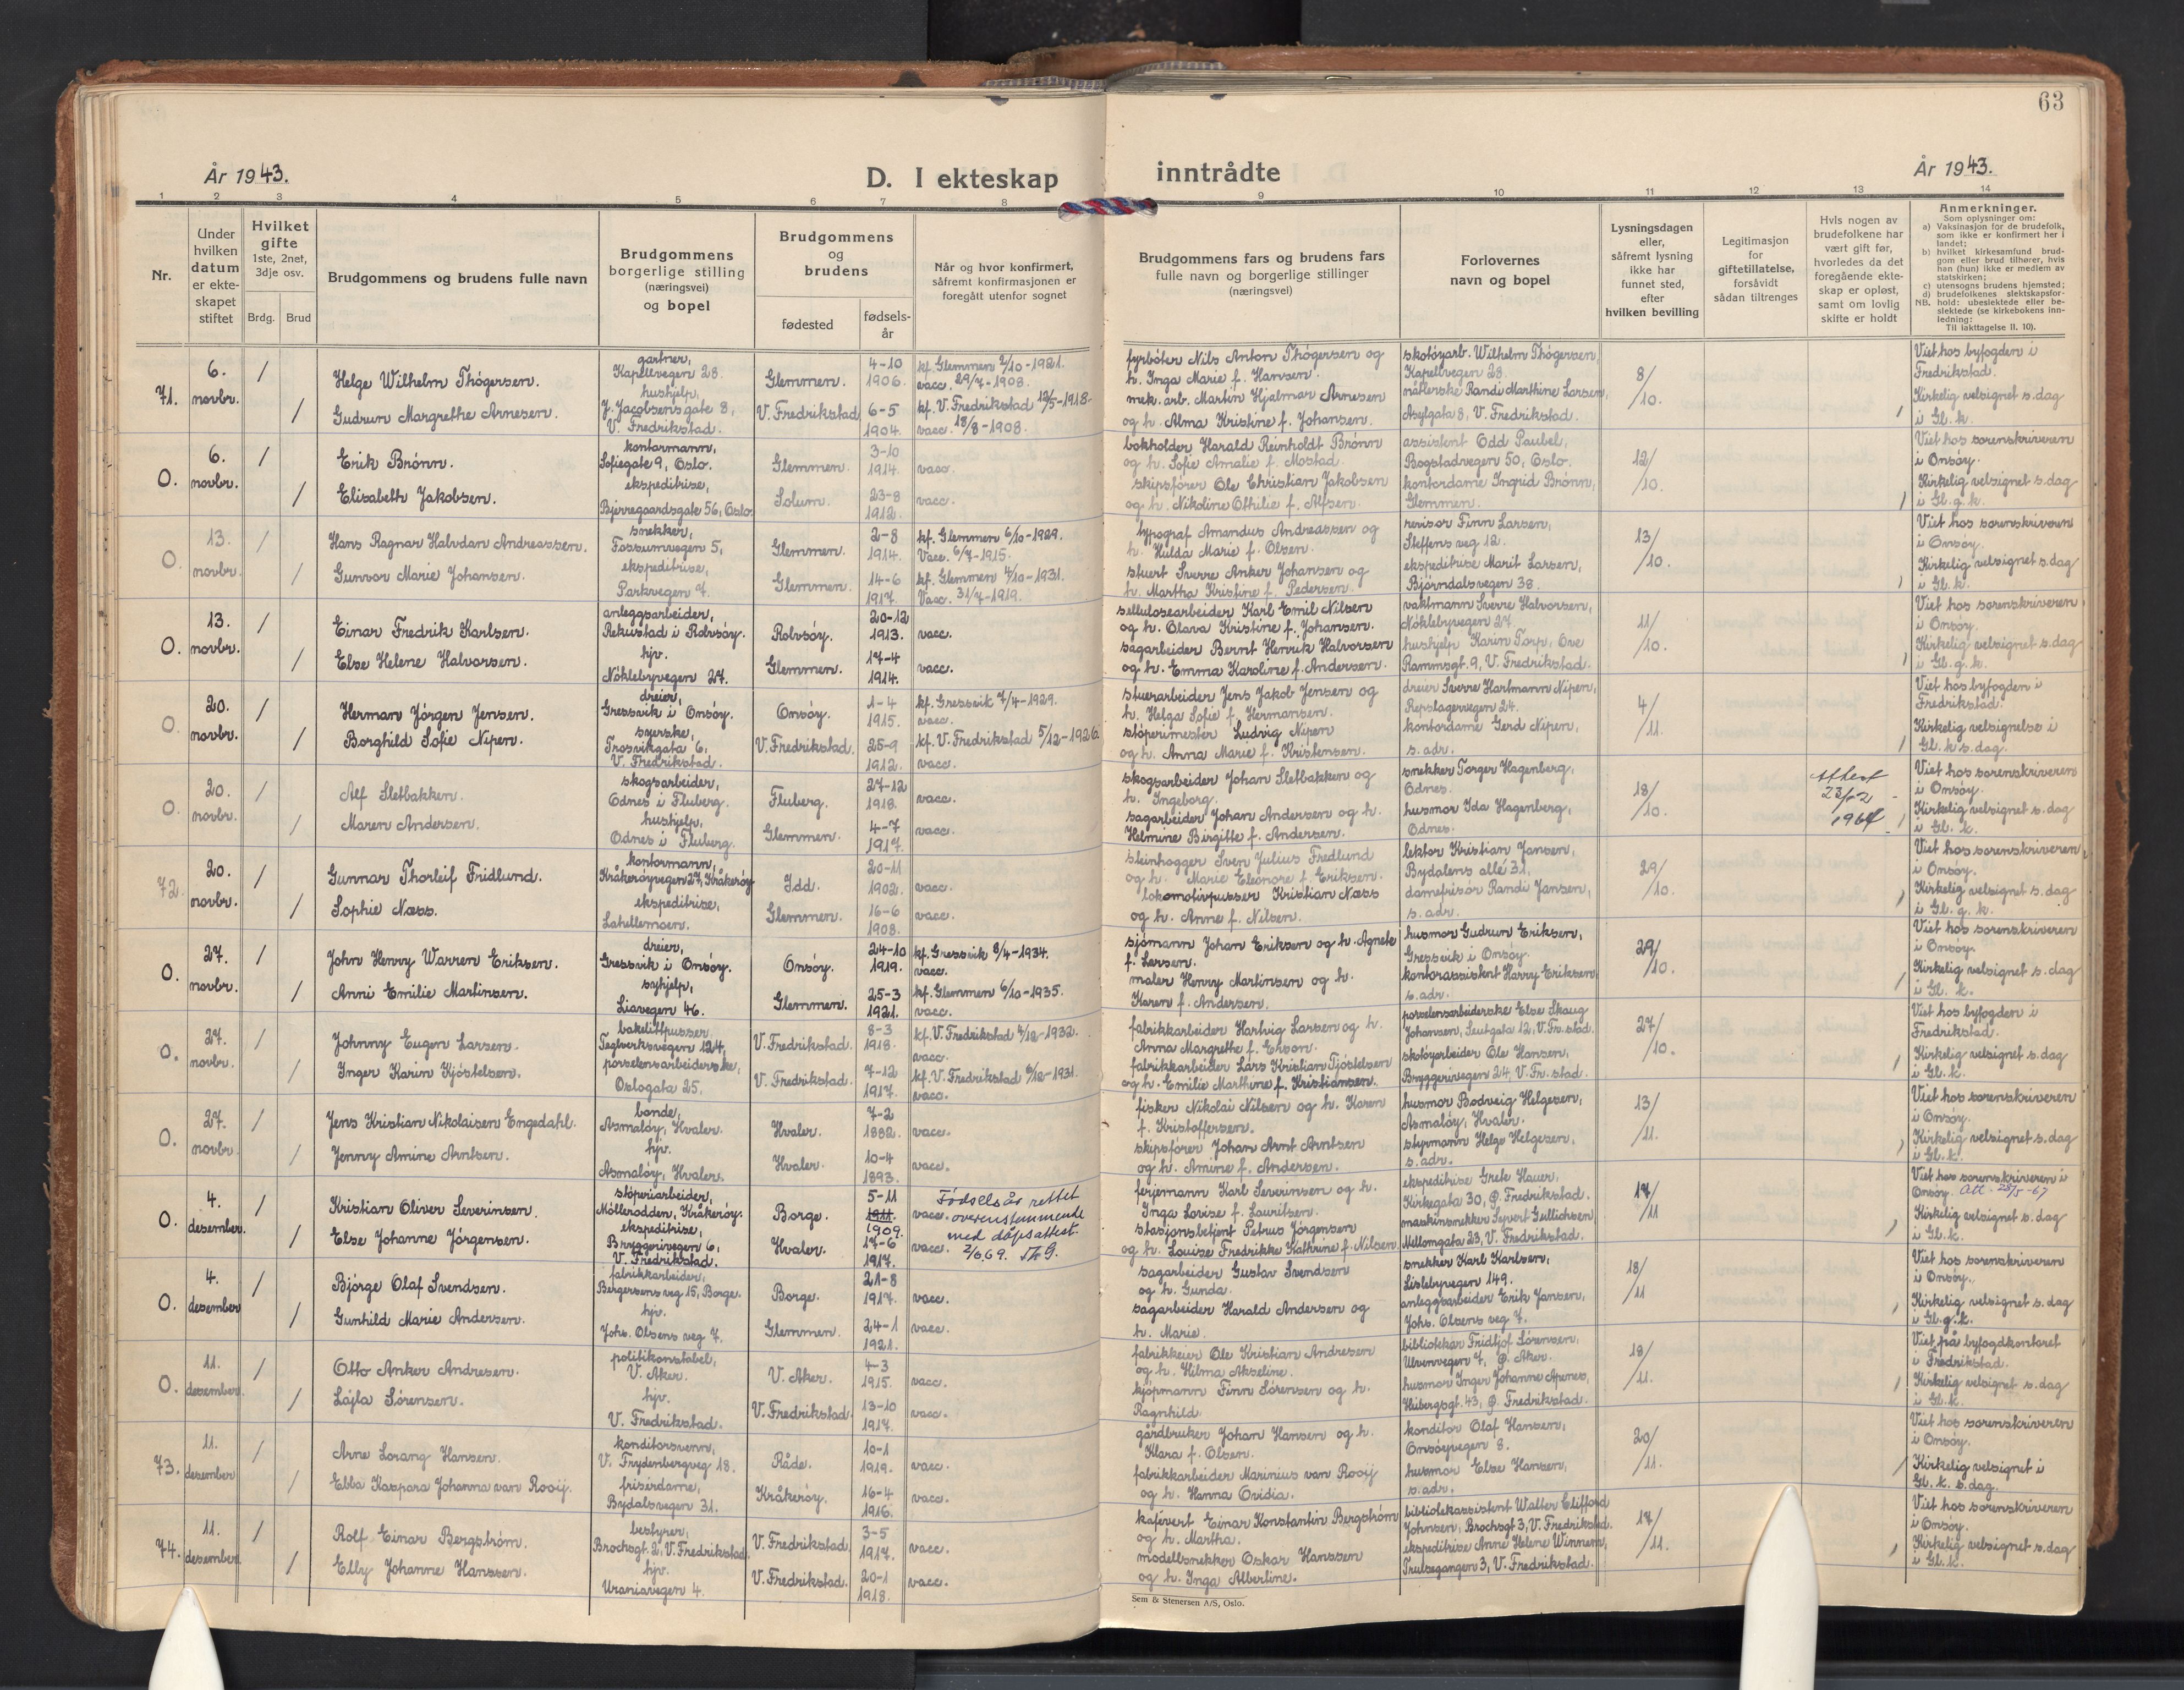 63
År 1943.
D. I ekteskap inntrådte
År 1943.
1 2 3 4 5 6 7 8 9 10 11 12 13 14
Nr.
Under hvilken datum er ekteskapet stiftet
Hvilket gifte 1ste, 2net, 3dje osv.
Brdg. Brud
Brudgommens og brudens fulle navn
Brudgommens borgerlige stilling (næringsvei) og bopel
Brudgommens og brudens
fødested
fødselsår
Når og hvor konfirmert, såfremt konfirmasjonen er foregått utenfor sognet
Brudgommens fars og brudens fars fulle navn og borgerlige stillinger (næringsvei)
Forlovernes navn og bopel
Lysningsdagen eller, såfremt lysning ikke har funnet sted, efter hvilken bevilling
Legitimasjon for giftetillatelse, forsåvidt sådan tiltrenges
Hvis nogen av brudefolkene har vært gift før, hvorledes da det foregående ekteskap er opløst, samt om lovlig skifte er holdt
Anmerkninger.
Som oplysninger om:
a) Vaksinasjon for de brudefolk, som ikke er konfirmert her i landet;
b) hvilket kirkesamfund brudgom eller brud tilhører, hvis han (hun) ikke er medlem av statskirken;
c) utensogns brudens hjemsted;
d) brudefolkenes slektskapsforhold: ubeslektede eller beslektede (se kirkebokens innledning:
NB.
Til iakttagelse II. 10).
71. 6. novbr.
1 Helge Wilhelm Thøgersen. gartner, Kapellvegen 28. Glemmen. 4-10 1906. kf. Glemmen 2/10-1921. vacc. 29/7-1908.
1 Gudrun Margrethe Arnesen. hushjelp, J. Jacobsens gate 8, V. Fredrikstad. V. Fredrikstad 6-5 1904. kf. V. Fredrikstad 12/5-1918. vacc. 18/8-1908.
fyrbøter Nils Anton Thøgersen og h. Inga Marie f. Hansen.
mek. arb. Martin Hjalmar Arnesen og h. Alma Kristine f. Johansen.
skotøyarb. Wilhelm Thøgersen, Kapellvegen 28.
nåtlerske Randi Marthine Larsen, Asylgata 8, V. Fredrikstad.
8/10.
Viet hos byfogden i Fredrikstad. Kirkelig velsignet s. dag i Gl. k.
O. 6. novbr.
1 Erik Brønn. kontormann, Sofiegate 9, Oslo. Glemmen. 3-10 1914. vacc.
1 Elisabeth Jakobsen. ekspeditrise, Bjerregaardsgate 56, Oslo. Solum. 23-8 1912. vacc.
bokholder Harald Reinholdt Brønn og h. Sofie Amalie f. Mostad.
skipsfører Ole Christian Jakobsen og h. Nikoline Othilie f. Alfsen.
assistent Odd Paubel, Bogstadvegen 50, Oslo.
kontordame Ingrid Brønn, Glemmen.
12/10.
Viet hos sorenskriveren i Onsøy. Kirkelig velsignet s. dag i Gl. g. k.
O. 13. novbr.
1 Hans Ragnar Halvdan Andreassen. snekker, Fossumvegen 5, Glemmen. 2-8 1914. kf. Glemmen 6/10-1929. Vacc. 6/7-1915.
1 Gunvor Marie Johansen. ekspeditrise, Parkvegen 7. Glemmen. 14-6 1917. kf. Glemmen 4/10-1931. Vacc. 31/7-1919.
typograf Amandus Andreassen og h. Hulda Marie f. Olsen.
stuert Sverre Anker Johansen og h. Martha Kristine f. Pedersen.
revisor Finn Larsen, Steffens veg 12.
ekspeditrise Marit Larsen, Bjørndalsvegen 38.
13/10.
Viet hos sorenskriveren i Onsøy. Kirkelig velsignet s. dag i Gl. k.
O. 13. novbr.
1 Einar Fredrik Karlsen. anleggsarbeider, Rekustad i Rolvsøy. Rolvsøy. 20-12 1913. vacc.
1 Else Helene Halvorsen. hjv. Nøklebyvegen 27. Glemmen. 17-4 1914. vacc.
sellulosearbeider Karl Emil Nilsen og h. Olava Kristine f. Johansen.
sagarbeider Bernt Henrik Halvorsen og h. Emma Karoline f. Andersen.
vaktmann Sverre Halvorsen, Nøklebyvegen 27.
hushjelp Karin Torp, Ove Rammsgt. 9, V. Fredrikstad.
11/10.
Viet hos sorenskriveren i Onsøy. Kirkelig velsignet s. dag i Gl. g. k.
O. 20. novbr.
1 Herman Jørgen Jensen. dreier, Gressvik i Onsøy. Onsøy. 1-4 1915. kf. Gressvik 7/4-1929. vacc.
1 Borghild Sofie Nipen. syerske, Trosvikgata 6, V. Fredrikstad. V. Fredrikstad. 25-9 1912. kf. V. Fredrikstad 5/12-1926. vacc.
stuerarbeider Jens Jakob Jensen og h. Helga Sofie f. Hermansen.
støperimester Ludvig Nipen og h. Anna Marie f. Kristensen.
dreier Sverre Hartmann Nipen, Repslagervegen 24.
kontordame Gerd Nipen, s. adr.
4/11.
Viet hos byfogden i Fredrikstad. Kirkelig velsignelse i Gl. k. s. dag.
O. 20. novbr.
1 Alf Sletbakken. skogsarbeider, Odnes i Fluberg. Fluberg. 27-12 1918. vacc.
1 Maren Andersen. hushjelp, Odnes i Fluberg. Glemmen. 4-7 1917. vacc.
skogsarbeider Johan Sletbakken og h. Ingeborg.
sagarbeider Johan Andersen og h. Helmine Birgitte f. Andersen.
snekker Torger Hagenberg, Odnes.
husmor Ida Hagenberg, Odnes.
18/10.
Attest 23/12 1964
Viet hos sorenskriveren i Onsøy. Kirkelig velsignet s. dag i Gl. k.
72. 20. novbr.
1 Gunnar Thorleif Fridlund. kontormann, Kråkerøyvegen 27, Kråkerøy Idd. 20-11 1902. vacc.
1 Sophie Næss. ekspeditrise, Lahellemoen. Glemmen. 16-6 1908. vacc.
steinhogger Sven Julius Fredlund og h. Marie Eleonore f. Eriksen.
lokomotivpusser Kristian Næss og h. Anne f. Nilsen.
lektor Kristian Jansen, Bydalens allé 31,
damefrisør Randi Jansen, s. adr.
29/10.
Viet hos sorenskriveren i Onsøy. Kirkelig velsignet s. dag i Gl. g. k.
O. 27. novbr.
1 John Henry Warren Eriksen. dreier, Gressvik i Onsøy. Onsøy. 24-10 1919. kf. Gressvik 8/4-1934. vacc.
1 Anni Emilie Martinsen. syhjelp, Liavegen 46. Glemmen. 25-3 1921. kf. Glemmen 6/10-1935. vacc.
sjømann Johan Eriksen og h. Agnete f. Larsen.
maler Henry Martinsen og h. Karen f. Andersen.
husmor Gudrun Eriksen, Gressvik i Onsøy.
kontorassistent Harry Eriksen, s. adr.
29/10.
Viet hos sorenskriveren i Onsøy. Kirkelig velsignet s. dag i Gl. k.
O. 27. novbr.
1 Johnny Eugen Larsen. bakelittpusser, Teglverksvegen 124, V. Fredrikstad. 8-3 1918. kf. V. Fredrikstad 4/12-1932. vacc.
1 Inger Karin Kjøstelsen. porselensarbeiderske, Oslogata 25. V. Fredrikstad. 7-12 1917. kf. V. Fredrikstad 6/12-1931. vacc.
fabrikkarbeider Hartvig Larsen og h. Anna Margrethe f.
fabrikkarbeider Lars Kristian Tjøstelsen og h. Emilie Marthine f. Kristiansen.
porselensarbeiderske Else Skaug Johansen, Leutgata 12, V. Fr.stad.
skotøyarbeider Ole Hansen, Bryggerivegen 24, V. Fr.stad.
27/10.
Viet hos byfogden i Fredrikstad. Kirkelig velsignet s. dag i Gl. k.
O. 27. novbr.
1 Jens Kristian Nikolaisen Engedahl. bonde, Asmaløy, Hvaler. Hvaler. 7-2 1882. vacc.
1 Jenny Amine Arntsen. hjv. Asmaløy, Hvaler. Hvaler. 10-4 1893. vacc.
fisker Nikolai Nilsen og h. Karen f. Kristoffersen.
skipsfører Johan Arnt Arntsen og h. Amine f. Andersen.
husmor Bodveig Helgesen, Asmaløy, Hvaler.
styrmann Helge Helgesen, s. adr.
13/11.
Viet hos sorenskriveren i Onsøy. Kirkelig velsignet s. dag i Gl. k.
O. 4. desember.
1 Kristian Oliver Severinsen. støperiarbeider, Møllerodden, Kråkerøy. Borge. 5-11 1911 1909. vacc.
Fødselsår rettet overenstemmende med dåpsattest. 2/6.69.
1 Else Johanne Jørgensen. ekspeditrise, Bryggerivegen 6, V. Fredrikstad. Hvaler. 17-6 1917. vacc.
ferjemann Karl Severinsen og h. Inga Lovise f. Lauritsen.
stasjonsbetjent Petrus Jørgensen og h. Louise Fredrikke Kathrine f. Nilsen.
ekspeditrise Grete Hauer, Kirkegata 30, Ø. Fredrikstad.
maskinsnekker Syvert Gullichsen, Mellomgata 23, V. Fredrikstad.
17/11
Viet hos sorenskriveren i Onsøy. Att. 28/5-67 Kirkelig velsignet s. dag i Gl. k.
O. 4. desember
1 Bjørge Olaf Svendsen. fabrikkarbeider, Bergersens veg 15, Borge. Borge. 21-8 1917. vacc.
1 Gunhild Marie Andersen. hjv. Johs. Olsens veg 7. Glemmen. 24-1 1921. vacc.
sagarbeider Gustav Svendsen og h. Gunda.
sagarbeider Harald Andersen og h. Marie.
snekker Karl Karlsen, Lislebyvegen 149.
anleggsarbeider Erik Jansen, Johs. Olsens veg 7.
18/11
Viet hos sorenskriveren i Onsøy. Kirkelig velsignet s. dag i Gl. g. k.
O. 11. desember
1 Otto Anker Andresen. politikonstabel, V. Aker. V. Aker. 4-3 1915. vacc.
1 Lajla Sørensen. hjv. V. Fredrikstad. V. Fredrikstad. 13-10 1917. vacc.
fabrikkeier Ole Kristian Andresen og h. Hilma Akseline.
kjøpmann Finn Sørensen og h. Ragnhild.
bibliotekar Fridtjof Sørensen, Ulvenvegen 7, Ø. Aker.
husmor Inger Johanne Apenes, Huibergsgt. 43, Ø. Fredrikstad.
18/11.
Viet på byfogdkontoret i Fredrikstad. Kirkelig velsignet s. dag i Gl. k.
73. 11. desember
1 Arne Lorang Hansen. konditorsvenn, V. Frydenbergveg 18. Råde. 10-1 1919. vacc.
1 Ebba Kaspara Johanna van Rooij. frisérdame, Bydalsvegen 31. Kråkerøy. 16-4 1916. vacc.
gårdbruker Johan Hansen og h. Klara f. Olsen.
fabrikkarbeider Marinius van Rooij og h. Hanna Ovidia.
konditor Olaf Hansen, Onsøyvegen 8.
husmor Else Hansen, s. adr.
20/11.
Viet hos sorenskriveren i Onsøy. Kirkelig velsignet i Gl. k. s. dag.
74. 11. desember.
1 Rolf Einar Bergstrøm. bestyrer, Brochsgt. 2, V. Fredrikstad. V. Fredrikstad 3-5 1917. vacc.
1 Elly Johanne Hanssen. hjv. Uraniavegen 4. V. Fredrikstad. 20-1 1918. vacc.
kafévert Einar Konstantin Bergstrøm og h. Martha.
modellsnekker Oskar Hanssen og h. Inga Albertine.
bibliotekassistent Walter Clifford Johnsen, Brochsgt 3, V. Fredrikstad.
ekspeditrise Anne Helene Winnem, Trulsegangen 3, V. Fredrikstad.
17/11.
Viet hos sorenskriveren i Onsøy. Kirkelig velsignet s. dag i Gl. k.
Sem & Stenersen A/S, Oslo.